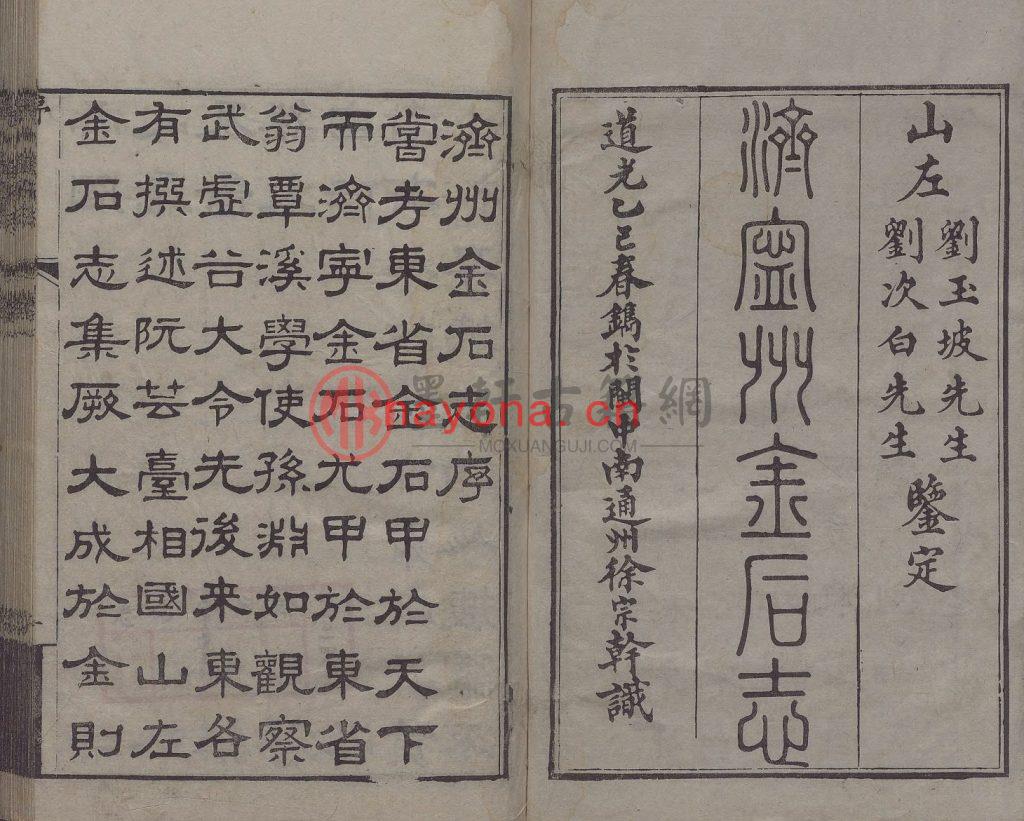 山左
劉玉坡先生
劉次白先生
鑒定
濟寧州金石志
道光乙巳春鐫於閩中南通州徐宗幹識
濟州金石志序
嘗考東省金石甲於天下
而濟寧金石尤甲於東省
翁覃溪學使孫淵如觀察
武虛谷大令先後來東各
有撰述阮芸臺相國山左
金石志集厥大成於金則
序
墨軒古籍網
nayona.cn
MOXUANGUJI.COM